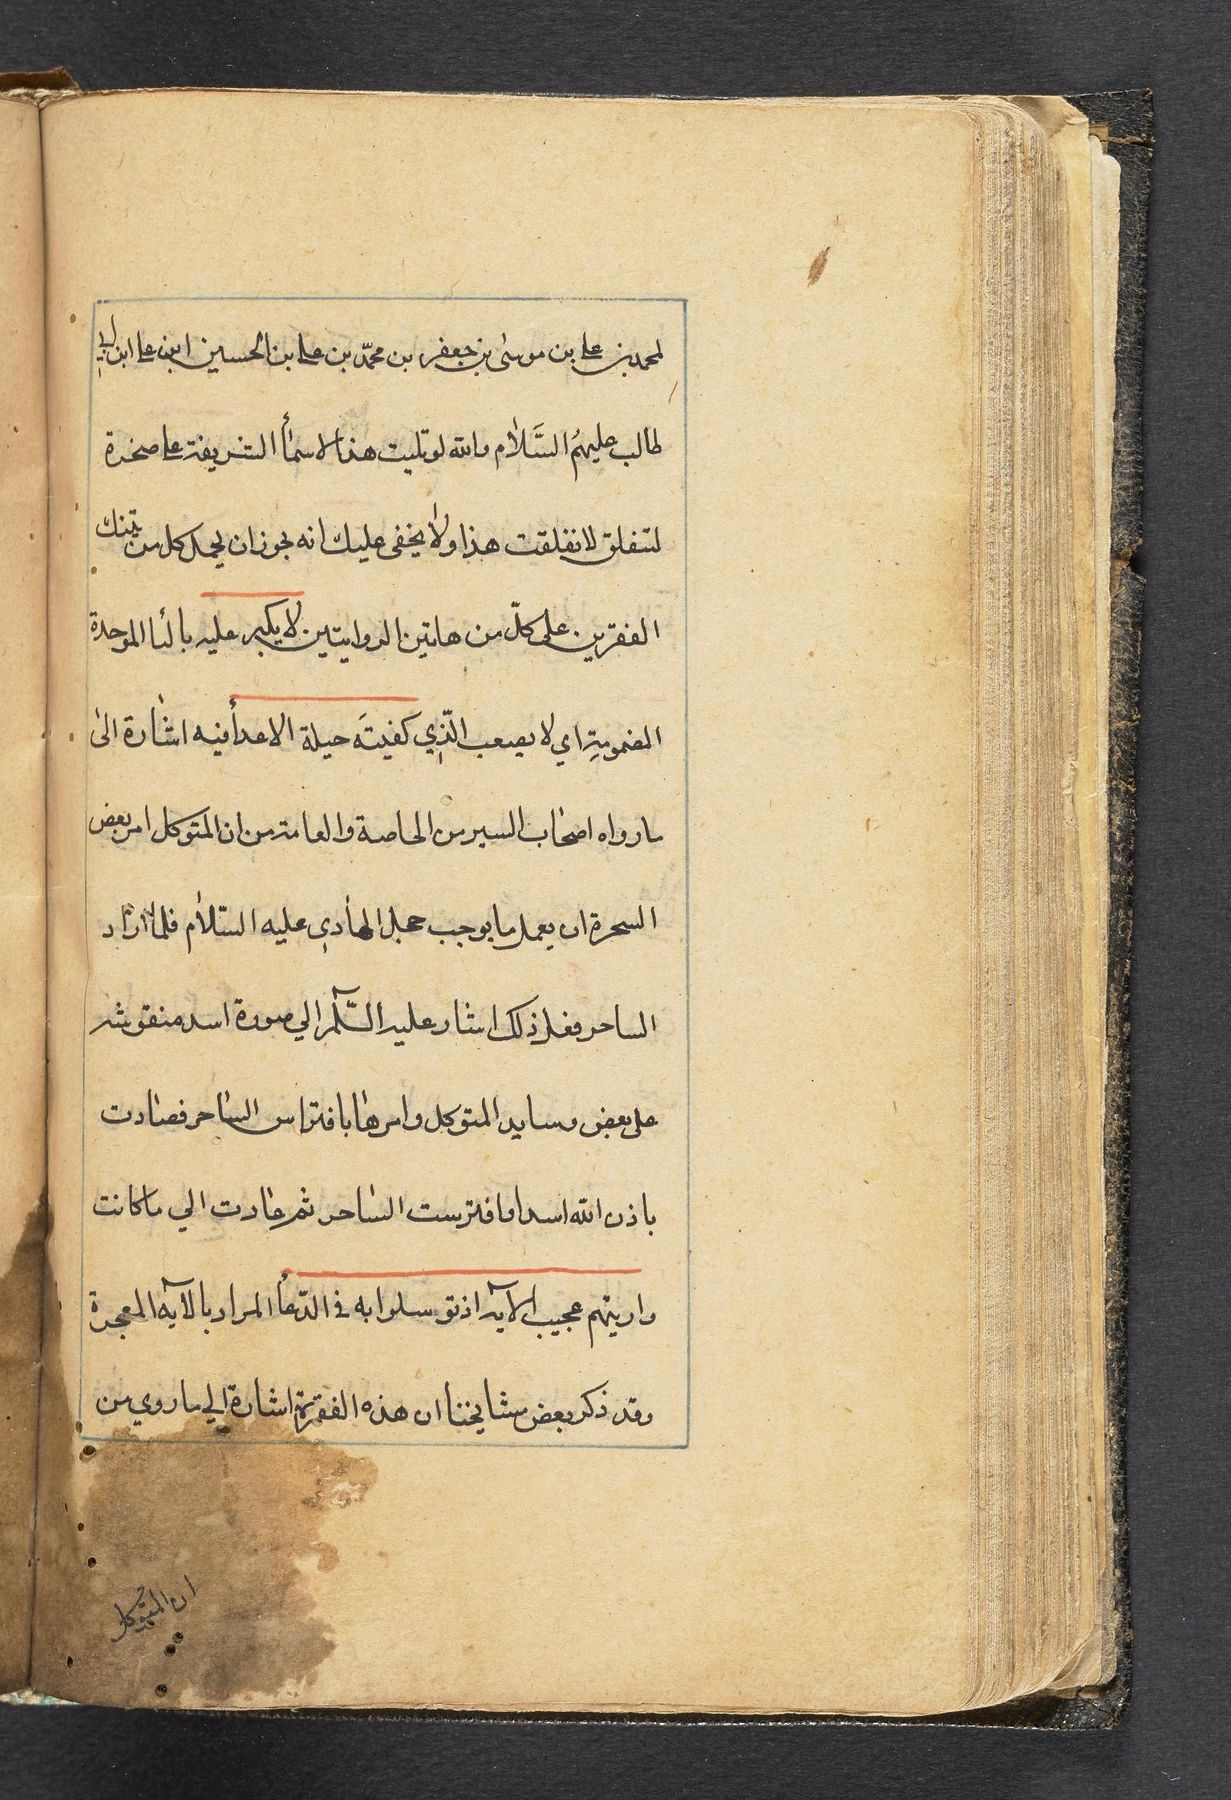 لمحمد بن علي بن موسى بن جعفر بن محمّد بن علي بن الحسين ابن علي ابن ابي
طالب عليهمُ السَّلام والله لو تليت هذا الاسمأ الشريفة على صخرة
لتنفلق لانفلقت هذا ولا يخفى عليك انه يجوز ان يحمل كل من تينك
الفقرين على كلّ من هاتين الروايتين لا يكبر عليه بالبأ الموحدة
المضمومة اي لا يصعب الّذِي كفيتَه حيلة الاعدأ فيه اشارة الى
ما رواه اصحاب السير من الخاصة والعامة من ان المتوكل امر بعض
السحرة ان يعمل ما يوجب خجل الهأدي عليه السّلام فلما اراد
الساحر فعل ذلك اشار عليه السّلم الي صورة اسد منقوشه
على بعض وسايد المتوكل وامرها بافتراس الساحر فصارت
باذن الله اسدا فافترست الساحر ثم عادت الي ما كانت
واريتهم عجيب الآية اذ توسلوا به في الدّعأ المراد بالآيه المعجزة
وقد ذكر بعض مشايخنا ان هذه الفقرة اشارة الي ما روي من
ان المتوكل